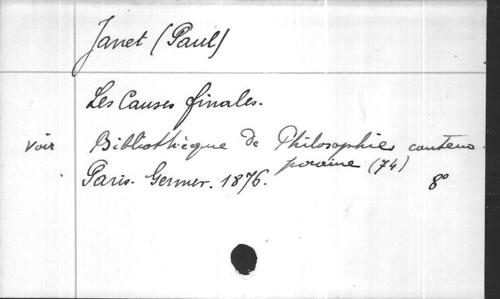 Janet (Paul)
Les Causes finales.
voir Bibliothèque de Philosophie contem-
poraine (74)
Paris. Germer. 1876. 8°